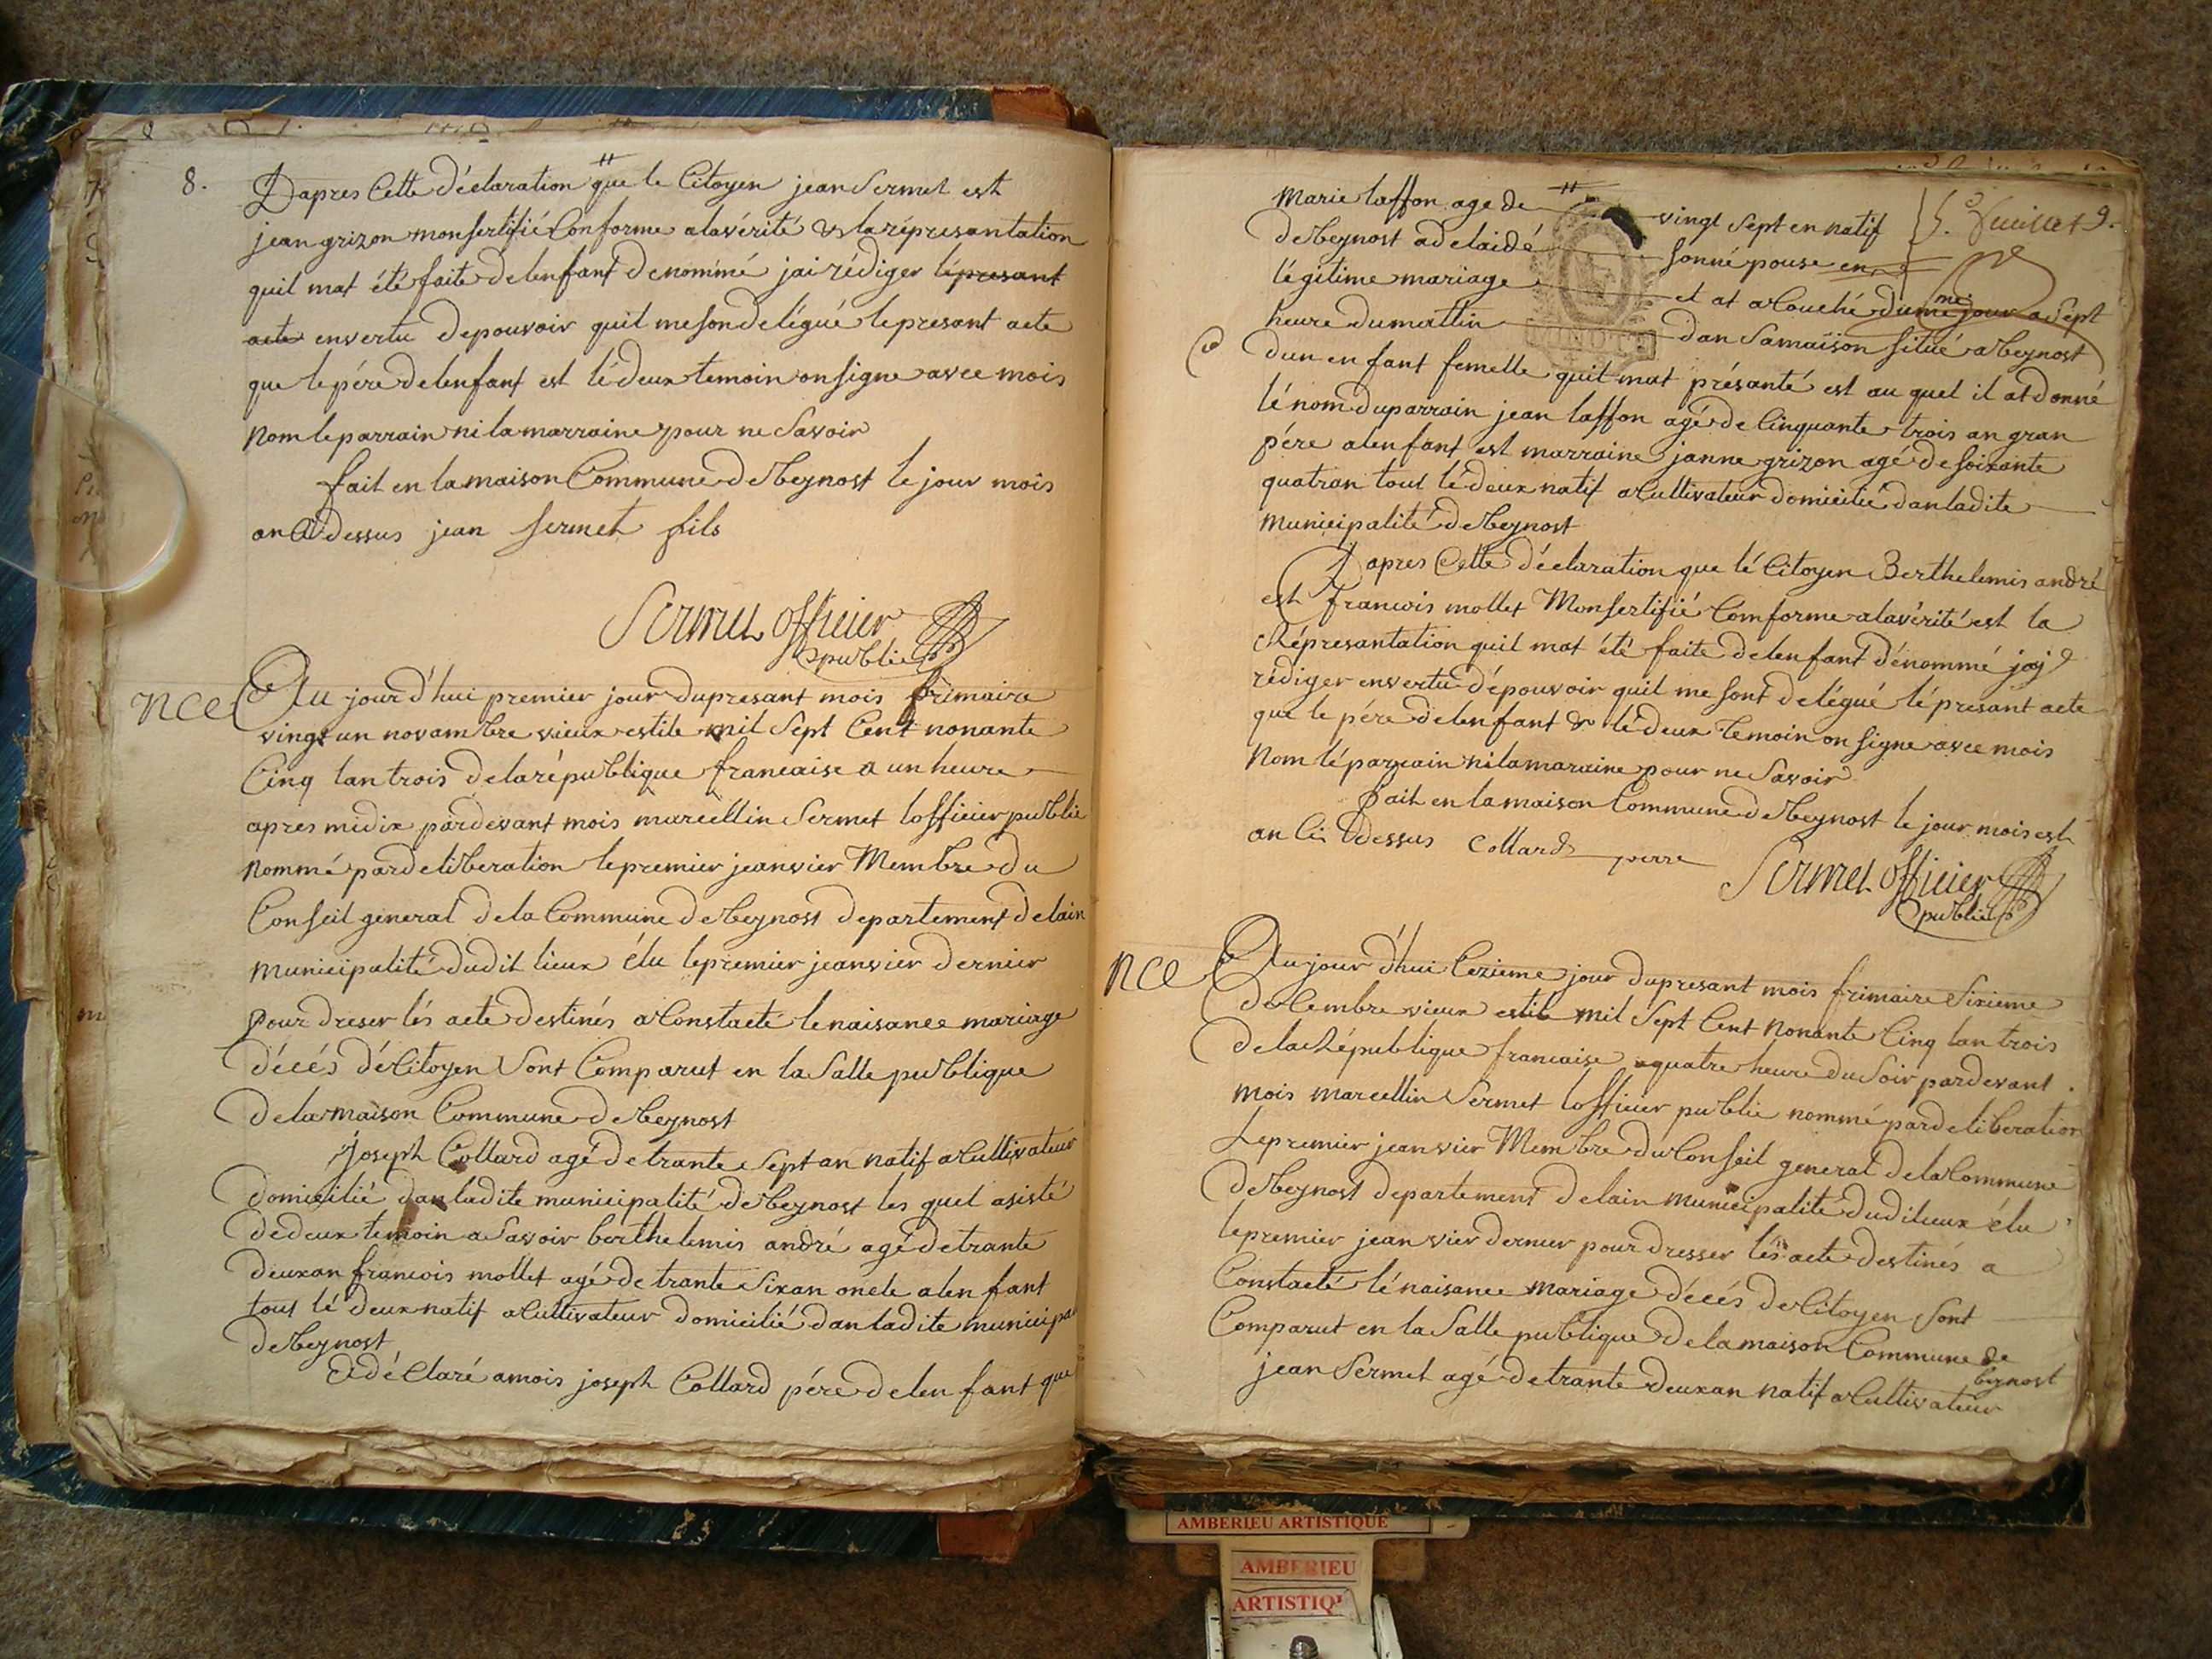 8.
Dapres Cette déclaration que le Citoyen jean Sermet est
jean grizon monsertifié Conforme alavérité & la réprésantation
quil mat été faite delenfant denommé jai rédiger lé presant
acte envertu depouvoir quil meson delégué lepresant acte
que le pére delenfant est lé deux temoin onsigne avec mois
nom leparrain ni lamarraine pour ne Savoir
fait en lamaison Commune debeynost le jour mois
an Cidessus jean sermet fils
Sermet officier
publie
nce
Au jourd'hui premier jour dupresant mois frimaire
vingt un novambre vieux estile mil Sept Cent nonante
Cinq lan trois delarépublique francaise a un heure
apres midix pardevant mois marcellin Sermet lofficier publie
nommé pardeliberation lepremier jeanvier Membre du
Conseil general dela Commune debeynost departement delain
municipalité dudit lieux élu lepremier jeanvier dernier
pour dreser lés acte destinés a Constacté lenaisance mariage
décés dé Citoyen Sont Comparut en la Salle publique
delamaison Commune debeynost
joseph Collard agé detrante Sept an natif a Cultivateur
domicilié danladite municipalité debeynost les quel asisté
dedeux temoin a Savoir berthelemis andré agé detrante
deuxan francois mollet agé de trante Sixan oncle alenfant
tout lé deux natif a Cultivateur domicilié danladite municipa
debeynost
A déClaré amois joseph Collard pére delenfant que
5.e feuillet 9.
Marie laffon age de vingt Sept en natif
debeynost adelaidé sonné pouse en
légitime mariage et at acouché du me jour a Sept
heure dumattin dan Samaïson situé a beynost
dun enfant femelle quil mat présanté est au quel il at donné
lé nom duparrain jean laffon agé de Cinquante trois an gran
pére alenfant est marraine janne grizon agé desoixante
quatran tout lé deux natif a Cultivateur domicilié danladite
municipalité debeynost
Dapres Cette déclaration que lé Citoyen Berthelemis andré
est francois mollet Monsertifié Comforme alavérité est la
Répresantation quil mat été faite delenfant dénommé jaj
rédiger envertu dépouvoir quil me sont delégué lépresant acte
que le pére delenfant & lé deux temoin on signe avec mois
nom léparrain ni lamaraine pour ne Savoir
fait en lamaison Commune debeynost le jour mois est
an Ci dessus Collard perre
Sermet officier
publie
nce
Au jour d'hui Cezieme jour dupresant mois frimaire Sixieme
deCembre vieux estile mil Sept Cent nonante Cinq lan trois
dela République francaise a quatre heure du Soir pardevant
mois marcellin Sermet lofficier publie nommé pardeliberation
Lepremier jeanvier Membre du Conseil general dela Commune
debeynost departement delain municipalité dudilieux élu
lepremier jeanvier dernier pour dresser lés acte destinés a
Constacté lé naisance mariage décés de Citoyen Sont
Comparut en la Salle publique delamaison Commune de
beynost
jean Sermet agé detrante deuxan natif a Cultivateur
AMBERIEU ARTISTIQUE
AMBERIEU
ARTISTIQ'